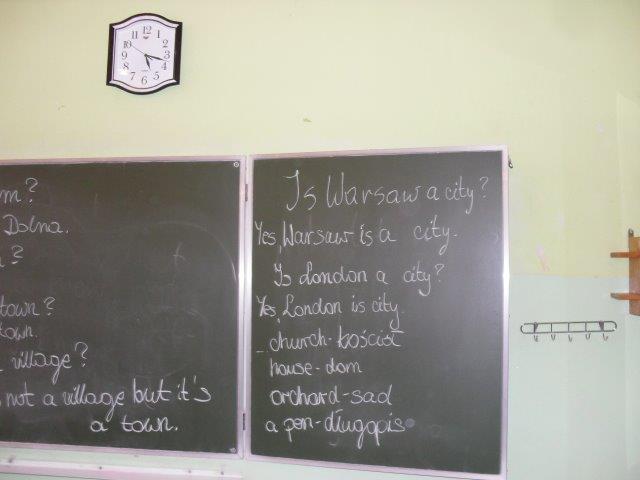 12
1
2
3
4
5
6
7
8
9
10
11
m?
Dolna.
?
town?
town.
village?
not a village but it's
a town.
Is Warsaw a city?
Yes, Warsaw is a city.
Is London a city?
Yes, London is city.
church-kościół
house-dom
orchard-sad
a pen-długopis